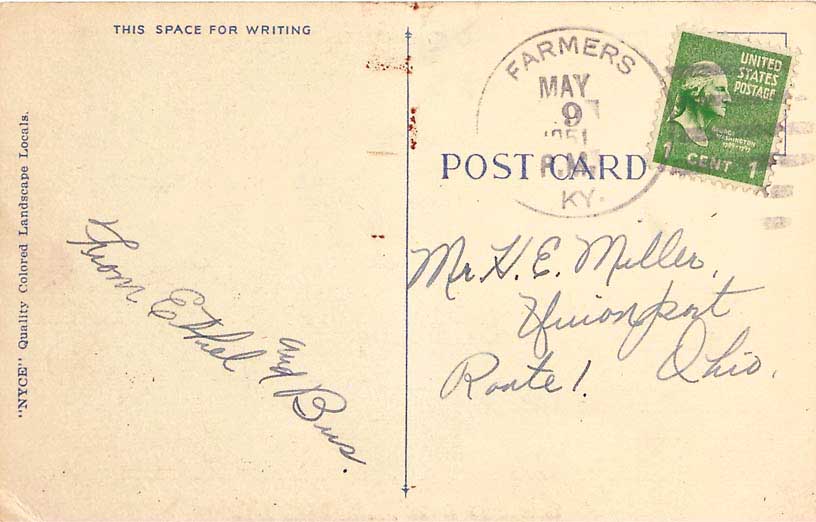 THIS SPACE FOR WRITING
"NYCE" Quality Colored Landscape Locals.
From Ethel and Bus.
FARMERS
MAY
9
1951
P.M.
KY.
UNITED
STATES
POSTAGE
GEORGE
WASHINGTON
1789-1797
1 CENT 1
POST CARD
Mr. H. E. Miller,
Unionport
Route 1. Ohio.